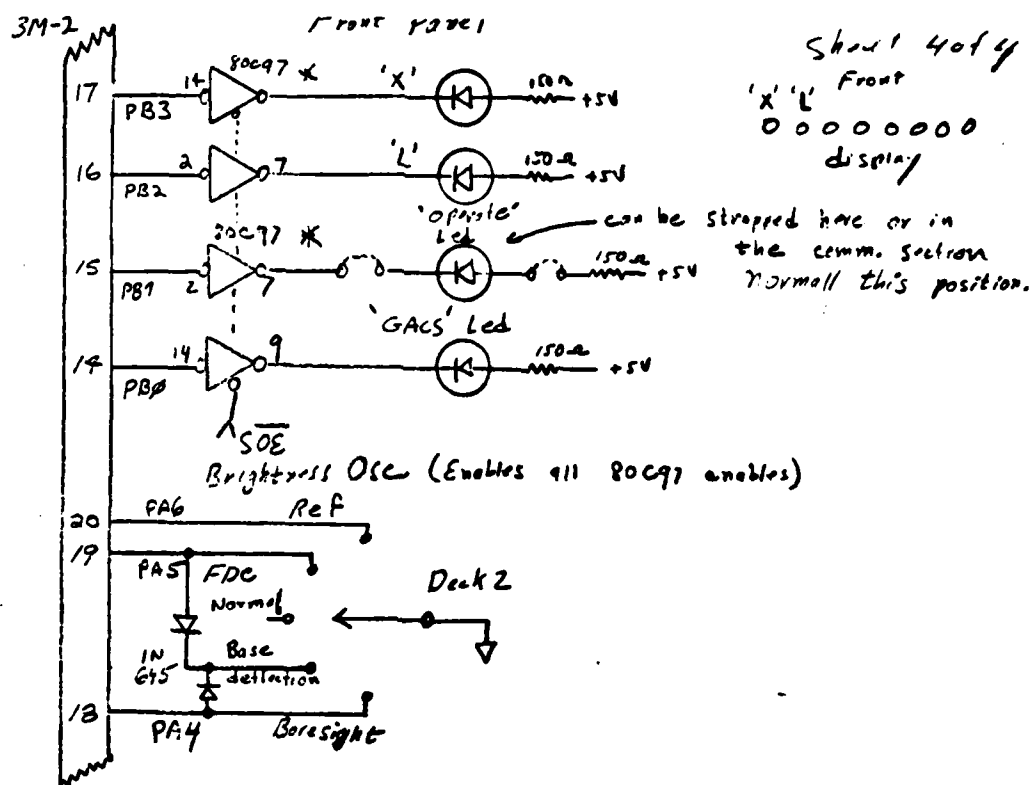 3M-2
Front panel
Sheet 4 of 4
Front
'X' 'L'
display
17
PB3
14
80C97 *
'X'
150Ω
+5V
16
PB2
2
7
'L'
150Ω
+5V
'Operate'
Led
can be strapped here or in
the comm. section
Normall this position.
15
PB1
2
80C97 *
7
150Ω
+5V
'GACS' Led
14
PBØ
14
9
150Ω
+5V
SOE
Brightness Osc (Enables all 80C97 enables)
20
PA6
Ref
19
PA5
FDC
Normal
Deck 2
1N
645
Base
deflection
18
PA4
Boresight